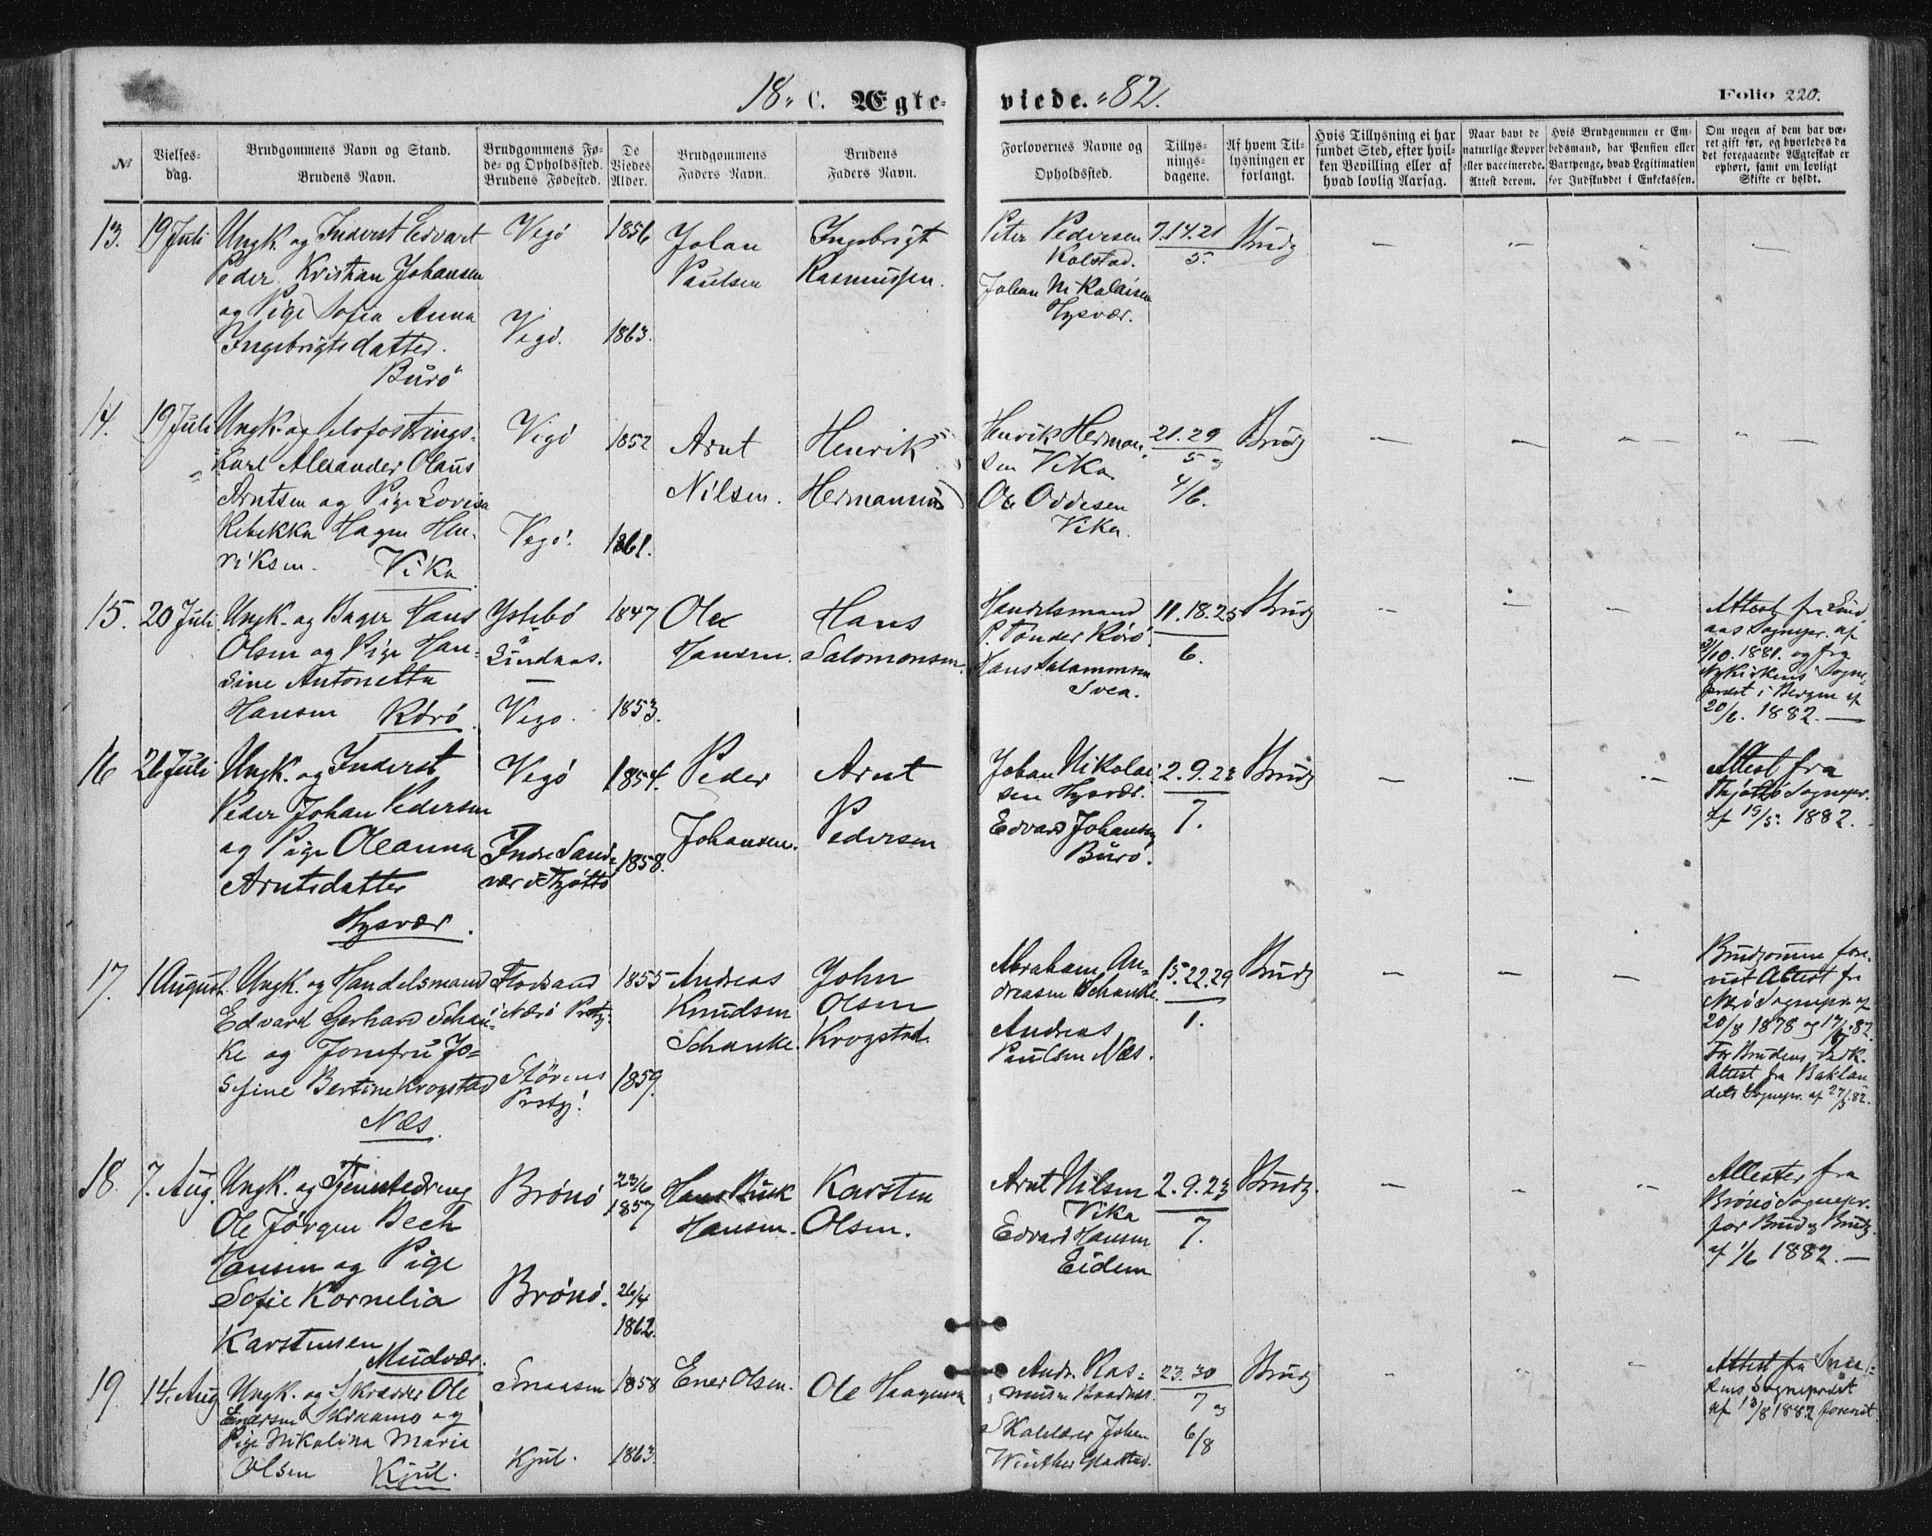 18 C. Ægteviede. 82.
Folio 220.
№
Vielses-
dag.
Brudgommens Navn og Stand.
Brudens Navn.
Brudgommens Fø-
de- og Opholdssted.
Brudens Fødested.
De
Viedes
Alder.
Brudgommens
Faders Navn.
Brudens
Faders Navn.
Forlovernes Navne og
Opholdssted.
Tillys-
nings-
dagene.
Af hvem Til-
lysningen er
forlangt.
Hvis Tillysning ei har
fundet Sted, efter hvil-
ken Bevilling eller af
hvad lovlig Aarsag.
Naar havt de
naturlige Kopper
eller vaccinerede.
Attest derom.
Hvis Brudgommen er Em-
bedsmand, har Pension eller
Vartpenge, hvad Legitimation
for Indskuddet i Enkekassen.
Om nogen af dem har væ-
ret gift før, og hvorledes da
det foregaaende Ægteskab er
ophørt, samt om lovligt
Skifte er holdt.
13. 19 Juli
Ungk. og Inderst Edvart
Peder Kristian Johansen
og Pige Sofia Anna
Ingebrigtsdatter.
Burö
Vegö
Vegö.
1856
1863.
Johan
Paulsen
Ingebrigt
Rasmussen.
Peter Pedersen
Kolstad.
Johan Nikolaisen
Hysvær.
7.14.21
5.
Brudg
14. 19 Juli
Ungk. og
Karl Alexander Olaus
Arntsen og Pige Lovisa
Rebekka Hagen Hen-
riksen. Vika
Vegö
Vegö.
1852
1861.
Arnt
Nilsen.
Henrik
Hermansen
Henrik Herman-
sen Vika
Ole Oddesen
Vika.
21.29
5 og
4/6.
Brudg
15. 20 Juli
Ungk. og Bager Hans
Olsen og Pige Han-
sine Antonetta
Hansen Rörö.
Ystebö
Lindaas.
Vegö.
1847
1853.
Ole
Hansen.
Hans
Salomonsen.
Handelsmand
P. Tønder Rörö.
Hans Salamonsen
Svea.
11.18.25
6.
Brudg
Attest fra Lind
aas Sognepr. af
3/10. 1881. og fra
Nykirkens Sogne-
præst i Bergen af
20/6. 1882.
16 26 Juli
Ungk. og Inderst
Peder Johan Pedersen
og Pige Oleanna
Arntsdatter
Hysvær.
Vegö
Indre Sand-
vær i Tjøtta
1854.
1858.
Peder
Johansen.
Arnt
Pedersen
Johan Nikolai-
sen Hysvær.
Edvard Johansen
Burö.
2.9.23
7.
Brudg
Attest fra
Thjøttø Sognepr.
af 15/5. 1882.
17. 1 August.
Ungk. og Handelsmand
Edvard Gerhard Schan-
ke og Jomfru Jo-
sefine Bertine Krogstad
Næs.
i Nærö Prstg.
Störens
Prstg.
1855
1859.
Andreas
Knudsen
Schanke.
John
Olsen
Krogstad.
Abraham An-
dreasen Schanke.
Andreas
Paulsen Næs.
15.22.29
1.
Brudg
Brudgommen fore-
vist Attest fra
Nærö Sognepr. af
20/8 1878 og 17/5.82.
For Bruden
Attest fra Baklan
dets Sognepr. af 27/5.82.
18. 7. Aug.
Ungk. og Tjenestedreng
Ole Jörgen Bech
Hansen og Pige
Sofie Kornelia
Karstensen
Mudvær.
Brönö
Brönö.
23/6
1857
26/4
1862.
Hans Buck
Hansen.
Karsten
Olsen.
Arnt Nilsen
Vika
Edvard Hansen
Eidem
2.9.23
7.
Brudg.
Attester fra
Brönö Sognepr.
for Brud og Brudg.
af 1/6 1882.
19. 14. Aug
Ungk. og Skrædder Ole
Einersen Skraamo og
Pige Nikolina Maria
Olsen Kjul.
Snaasen
Kjul.
1858
1863.
Ener Olsen.
Ole Haagensen
Andr. Ras-
musen
Johan
Winther Gladstad.
23.30
7 og
6/8
Brudg
Attest fra Snaa-
sens Sogneprest
af 13/8 1882 forevist.